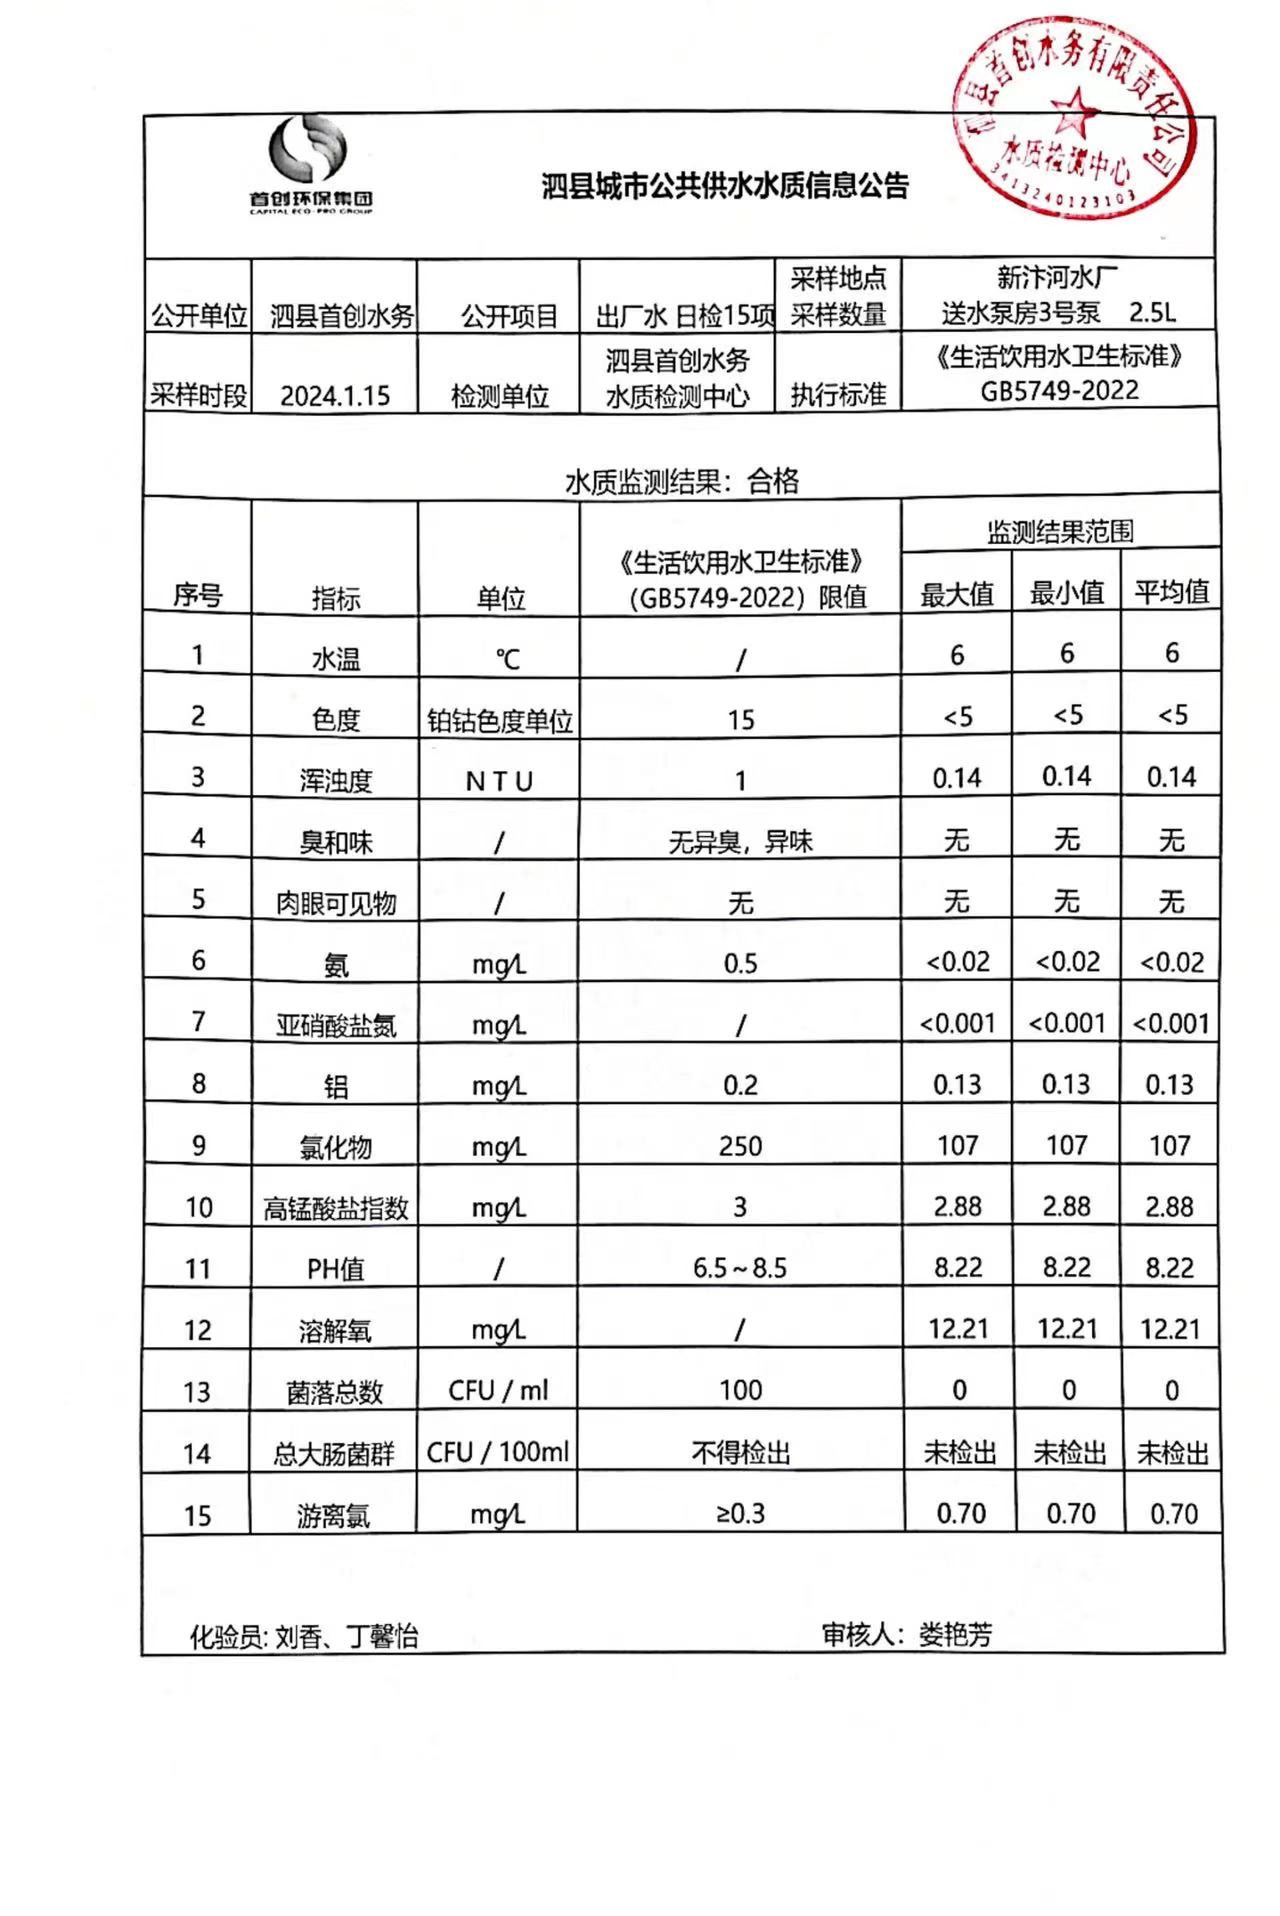 泗县首创水务有限责任公司
水质检测中心
3413240123103
首创环保集团
CAPITAL ECO-PRO GROUP
泗县城市公共供水水质信息公告
公开单位 泗县首创水务 公开项目 出厂水 日检15项 采样地点 采样数量 新汴河水厂 送水泵房3号泵 2.5L
采样时段 2024.1.15 检测单位 泗县首创水务 水质检测中心 执行标准 《生活饮用水卫生标准》 GB5749-2022
水质监测结果：合格
序号 指标 单位 《生活饮用水卫生标准》 （GB5749-2022）限值 监测结果范围
最大值 最小值 平均值
1 水温 ℃ / 6 6 6
2 色度 铂钴色度单位 15 <5 <5 <5
3 浑浊度 N T U 1 0.14 0.14 0.14
4 臭和味 / 无异臭，异味 无 无 无
5 肉眼可见物 / 无 无 无 无
6 氨 mg/L 0.5 <0.02 <0.02 <0.02
7 亚硝酸盐氮 mg/L / <0.001 <0.001 <0.001
8 铝 mg/L 0.2 0.13 0.13 0.13
9 氯化物 mg/L 250 107 107 107
10 高锰酸盐指数 mg/L 3 2.88 2.88 2.88
11 PH值 / 6.5～8.5 8.22 8.22 8.22
12 溶解氧 mg/L / 12.21 12.21 12.21
13 菌落总数 CFU / ml 100 0 0 0
14 总大肠菌群 CFU / 100ml 不得检出 未检出 未检出 未检出
15 游离氯 mg/L ≥0.3 0.70 0.70 0.70
化验员: 刘香、丁馨怡 审核人：娄艳芳